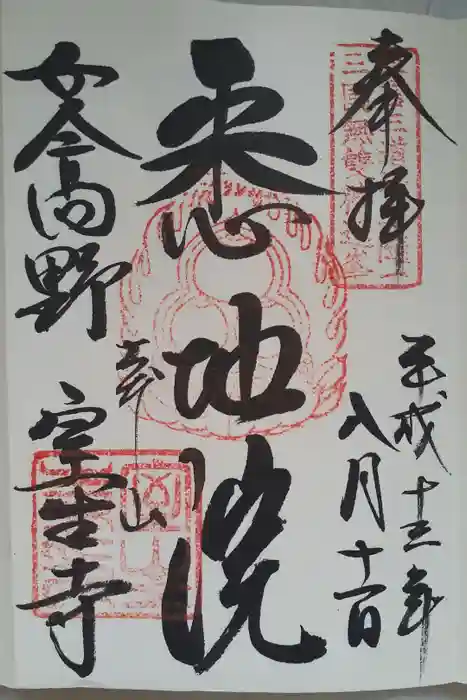 奉拝
平成十三年
八月十一日
悉地院
女人高野
室生寺